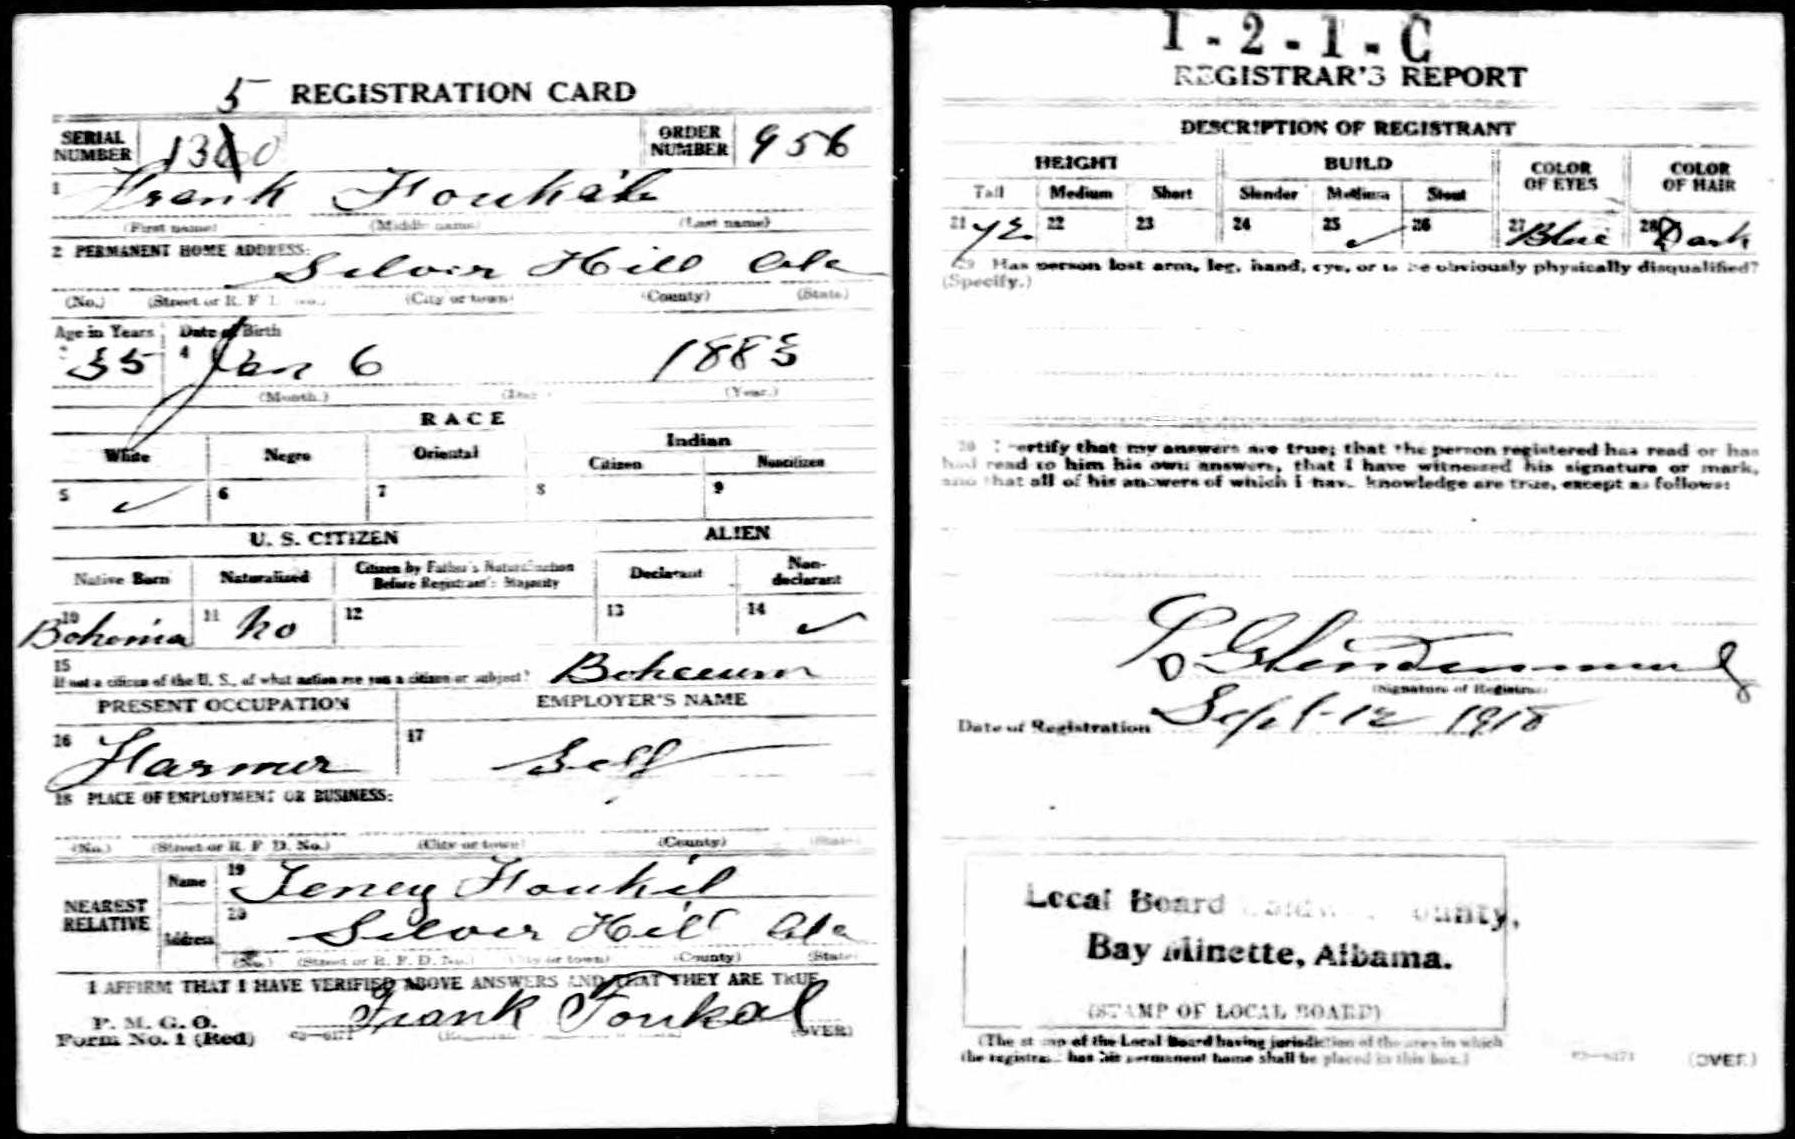 5 REGISTRATION CARD
SERIAL NUMBER 1300 ORDER NUMBER 956
1 Frank Foukal
(First name) (Middle name) (Last name)
2 PERMANENT HOME ADDRESS:
Silver Hill Ala
(No.) (Street or R. F. D. No.) (City or town) (County) (State)
Age in Years Date of Birth
3 35 4 Jan 6 1883
(Month.) (Day.) (Year.)
RACE
White Negro Oriental Indian
Citizen Noncitizen
5 ✓ 6 7 8 9
U. S. CITIZEN ALIEN
Native Born Naturalized Citizen by Father's Naturalization Before Registrant's Majority Declarant Non-declarant
10 Bohemia 11 No 12 13 14 ✓
15
If not a citizen of the U. S., of what nation are you a citizen or subject? 
PRESENT OCCUPATION EMPLOYER'S NAME
16 Farmer 17 Self
18 PLACE OF EMPLOYMENT OR BUSINESS:
(No.) (Street or R. F. D. No.) (City or town) (County) (State)
NEAREST RELATIVE
Name 19 Foukal
Address 20 Silver Hill Ala
(No.) (Street or R. F. D. No.) (City or town) (County) (State)
I AFFIRM THAT I HAVE VERIFIED ABOVE ANSWERS AND THAT THEY ARE TRUE
P. M. G. O.
Form No. 1 (Red) Frank Foukal (OVER)
1-2-1-C
REGISTRAR'S REPORT
DESCRIPTION OF REGISTRANT
HEIGHT BUILD COLOR OF EYES COLOR OF HAIR
Tall Medium Short Slender Medium Stout
21 yes 22 23 24 25 ✓ 26 27 Blue 28 Dark
29 Has person lost arm, leg, hand, eye, or is he obviously physically disqualified?
(Specify.)
30 I certify that my answers are true; that the person registered has read or has
had read to him his own answers, that I have witnessed his signature or mark,
and that all of his answers of which I have knowledge are true, except as follows:
(Signature of Registrar)
Date of Registration Sept-12 1918
Local Board Baldwin County,
Bay Minette, Albama.
(STAMP OF LOCAL BOARD)
(The stamp of the Local Board having jurisdiction of the area in which
the registrant has his permanent home shall be placed in this box.)
(OVER)